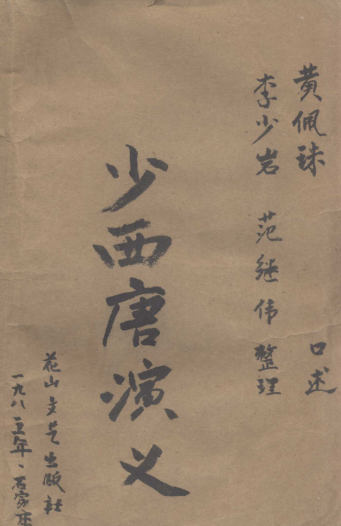 黄佩珠 口述
李少岩 范继伟 整理
少西唐演义
花山文艺出版社
一九八五年、石家庄